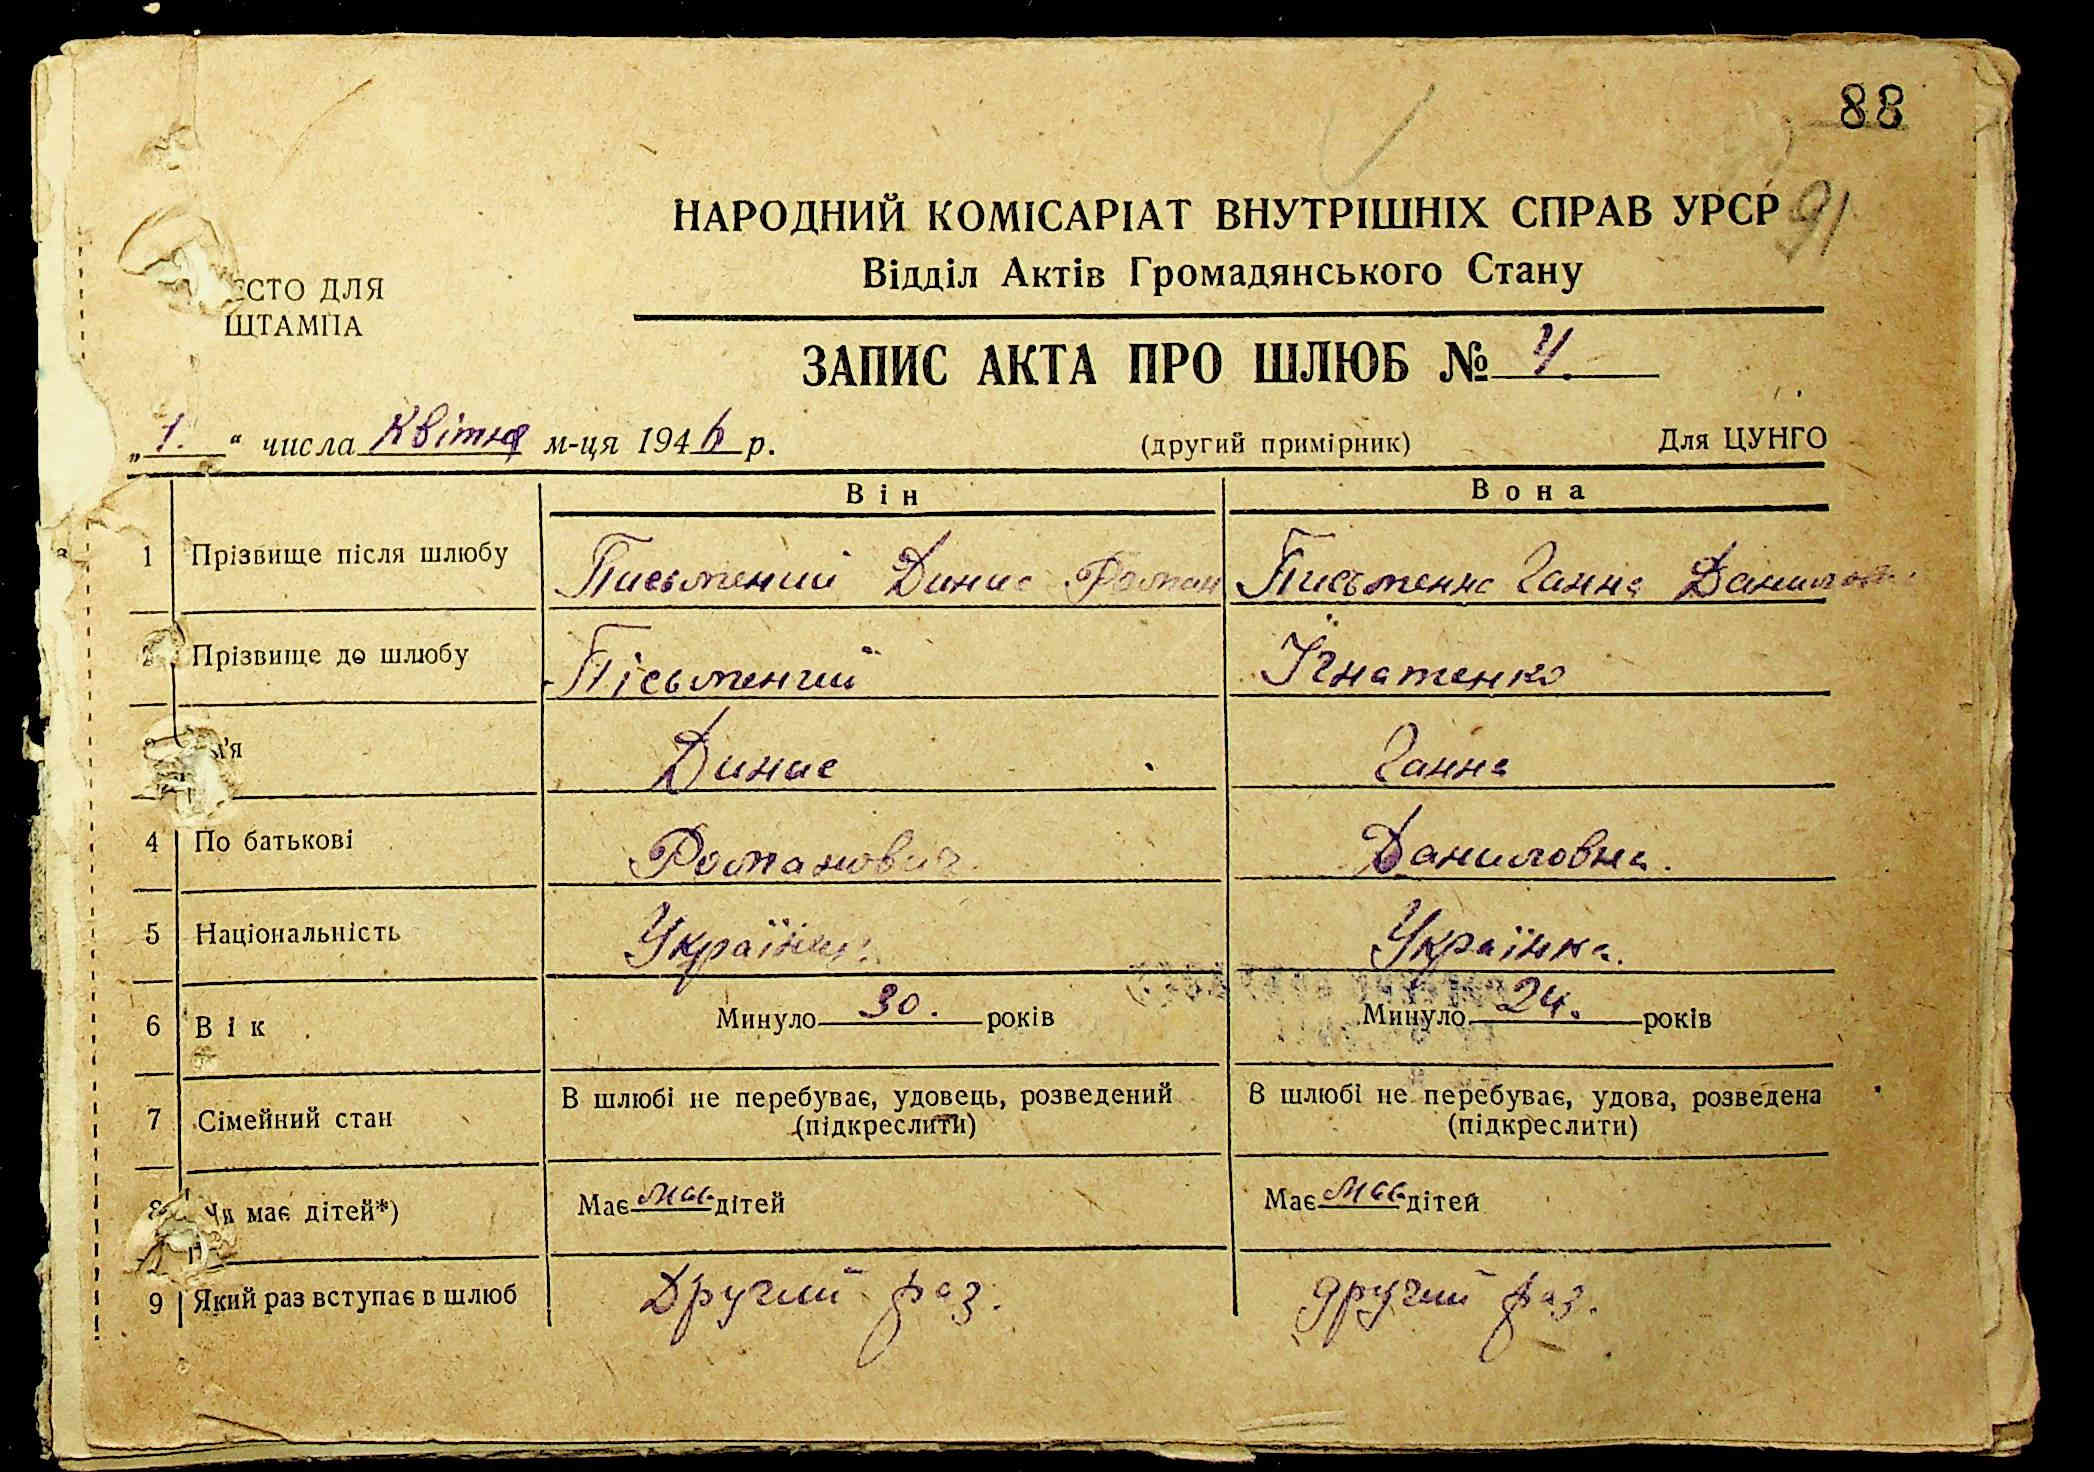 88
91
НАРОДНИЙ КОМІСАРІАТ ВНУТРІШНІХ СПРАВ УРСР
Відділ Актів Громадянського Стану
ЕСТО ДЛЯ
ШТАМПА
ЗАПИС АКТА ПРО ШЛЮБ № 4.
„1.“ числа Квітня м-ця 1946 р. (другий примірник) Для ЦУНГО
Він Вона
1 Прізвище після шлюбу Письмений Динис Роман Письменна Ганна
2 Прізвище до шлюбу Пісьменгий Ігнатенко
м'я Динис Ганна
4 По батькові Романович Даниловна.
5 Національність Українец. Українка.
6 Вік Минуло 30. років Минуло 24. років
7 Сімейний стан В шлюбі не перебуває, удовець, розведений (підкреслити) В шлюбі не перебуває, удова, розведена (підкреслити)
8 Чи має дітей*) Має дітей Має дітей
9 Який раз вступає в шлюб Другий раз. другий раз.